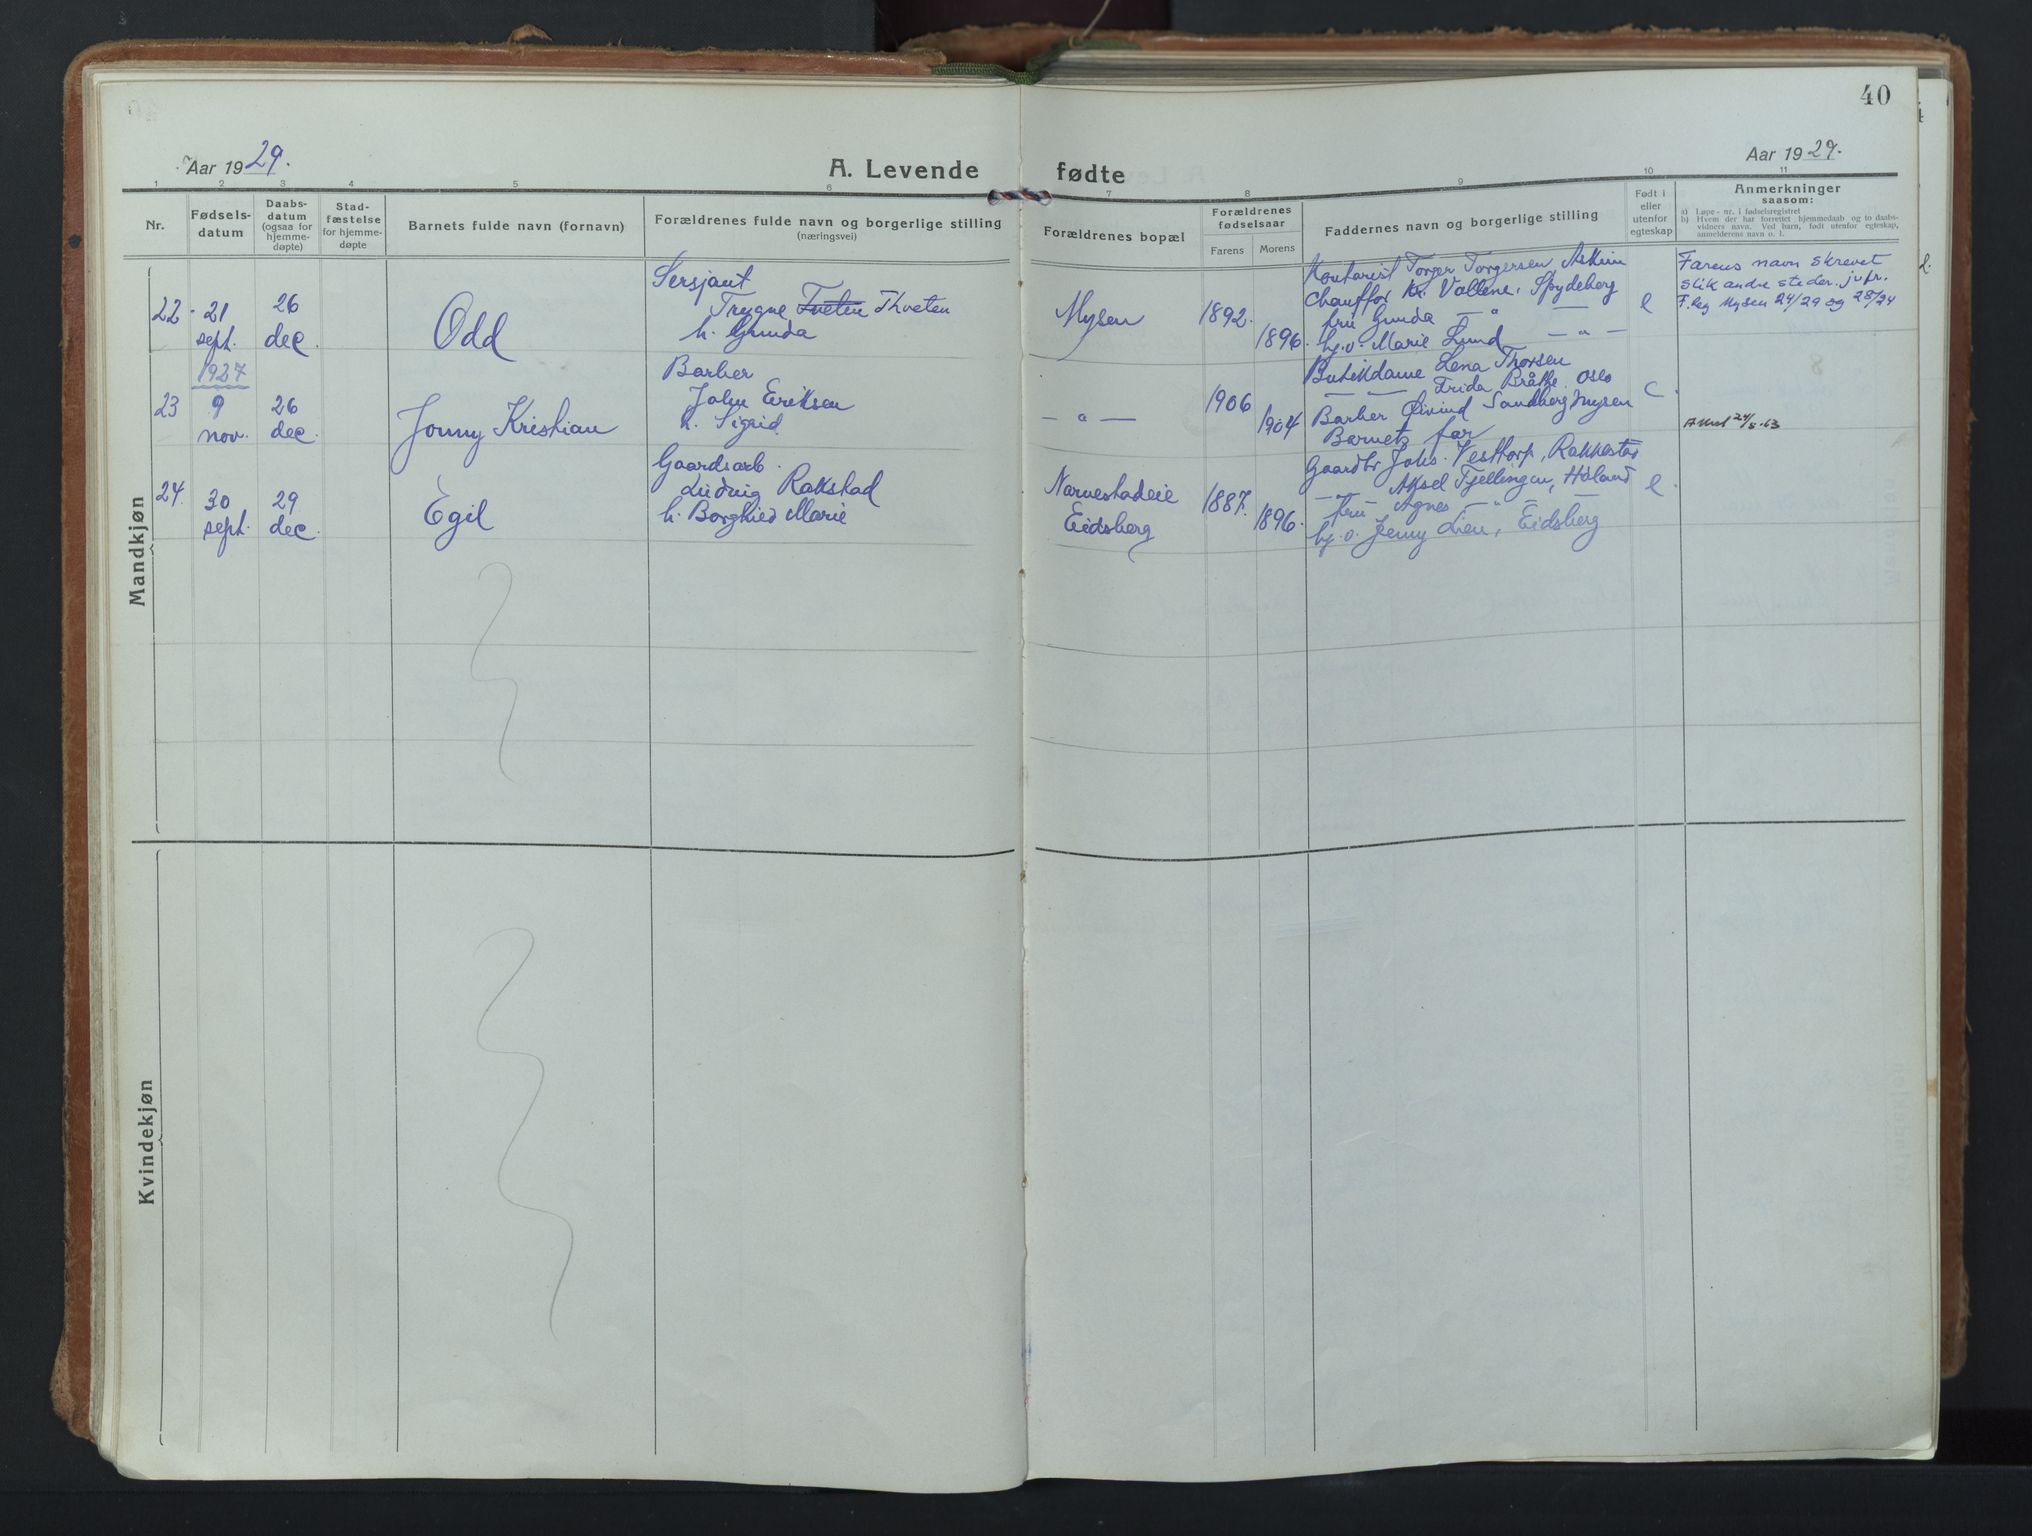 40
Aar 1929.
A. Levende fødte
Aar 1929.
1 2 3 4 5 6 7 8 9 10 11
Nr.
Fødsels-
datum
Daabs-
datum
(ogsaa for
hjemme-
døpte)
Stad-
fæstelse
for hjemme-
døpte
Barnets fulde navn (fornavn)
Forældrenes fulde navn og borgerlige stilling
(næringsvei)
Forældrenes bopæl
Forældrenes
fødselsaar
Farens Morens
Faddernes navn og borgerlige stilling
Født i
eller
utenfor
egteskap
Anmerkninger
saasom:
a) Løpe-nr. i fødselsregistret
b) Hvem der har forrettet hjemmedaab og to daabs-
vidners navn. Ved barn, født utenfor egteskap,
anmelderens navn o. l.
Mandkjøn
22
21
sept.
26
dec.
Odd
Sersjant
Trygve Tveten Thveten
h. Gunda
Mysen
1892.
1896.
Kontorist Torger Torgersen Askim
Chauffør Kr. Vollene, Spydeberg
fru Gunda — " —
hj.v. Marie Lund — " —
e
Farens navn skrevet
slik andre steder. jvfr.
F. reg Mysen 24/29 og 28/24
23
1927
9
nov.
26
dec.
Jonny Kristian
Barber
John Eriksen
h. Sigrid
— " —
1906
1904
Butikdame Lena Thorsen
— — Frida Bråthe. Oslo
Barber Øivind Sandberg Mysen
Barnets far
24/5.63
24.
30
sept.
29
dec.
Egil
Gaardsarb.
Ludvig Rakstad
h. Borghild Marie
Narvestadeie
Eidsberg
1887.
1896.
Gaardbr Johs. Vesttorp, Rakkestad
— " — Aksel Fjellingen, Høland
fru Agnes — " —
hj.v. Jenny Lien, Eidsberg
e.
Kvindekjøn